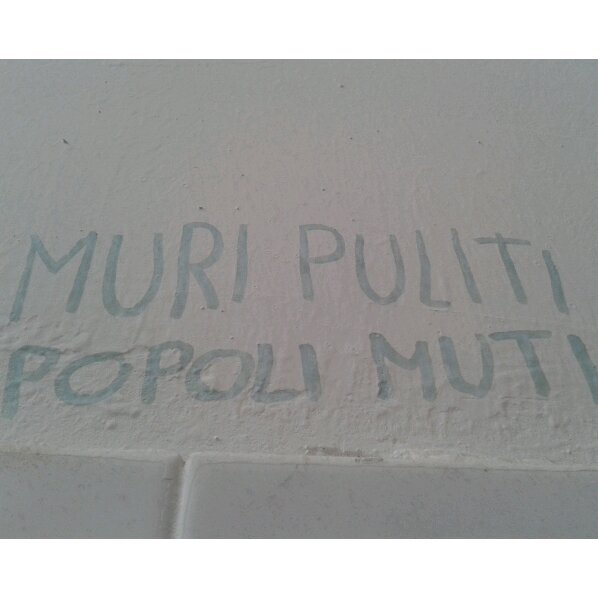 MURI PULITI
POPOLI MUTI